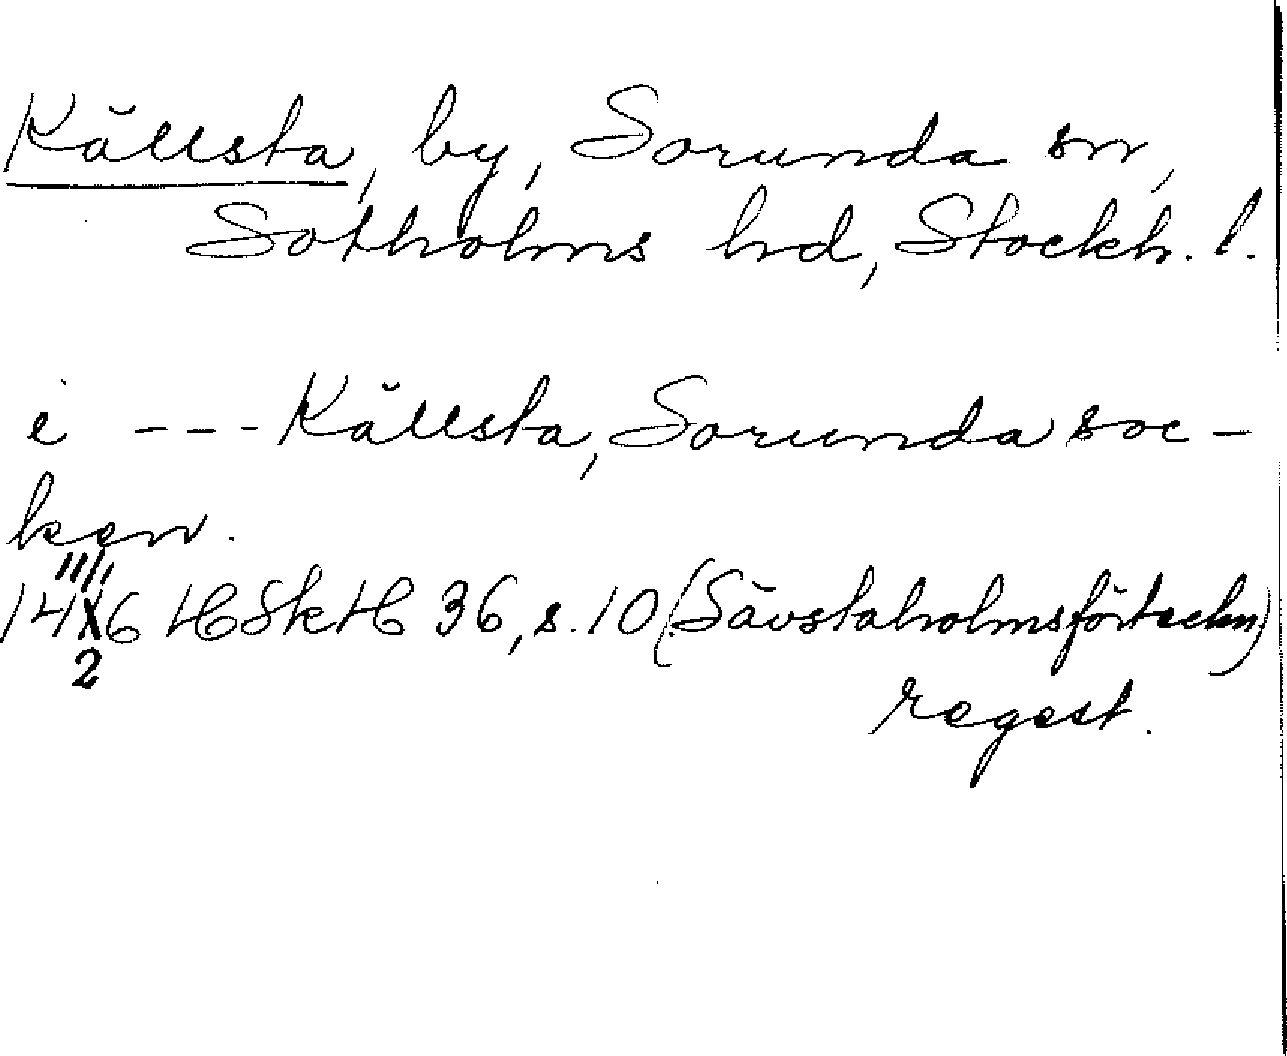 Källsta, by, Sorunda sn,
Sotholms hd, Stockh. l.
i --- Källsta, Sorunda soc-
ken.
11/11
14X6 HSkH 36, s. 10 (Sävstaholmsförteckn)
2
regest.